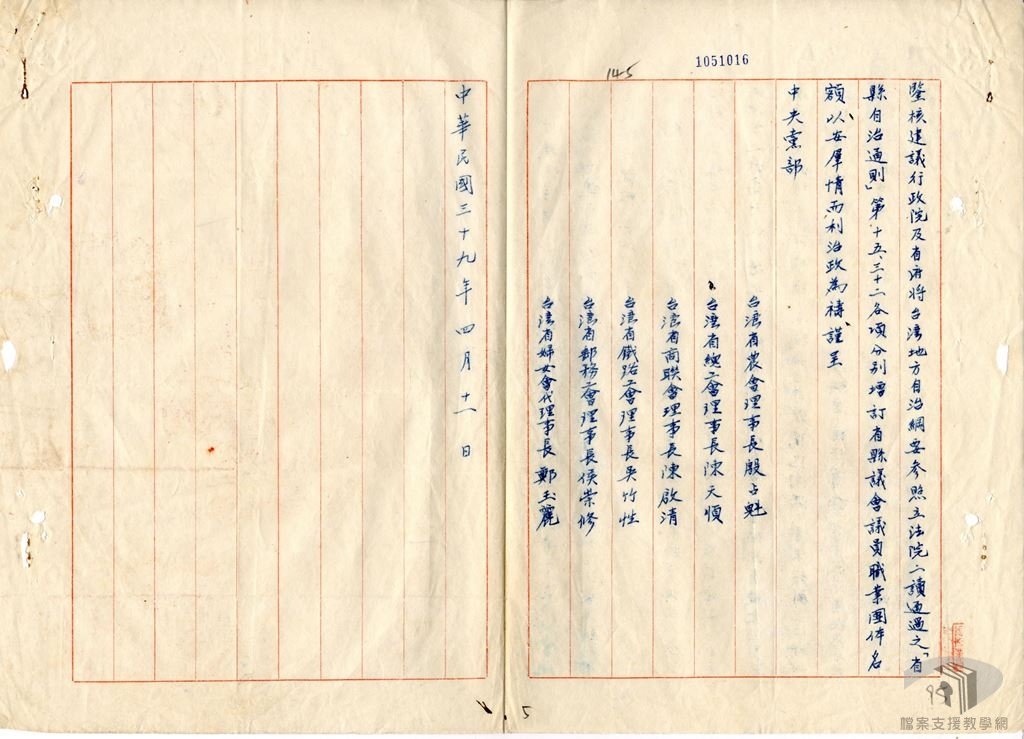 1051016
145
鑒核建議行政院及省府將台灣地方自治綱要參照立法院二讀通過之「省
縣自治通則」第十五、三十二各項分別增訂省縣議會議員職業團体名
額以安羣情而利治政為禱謹呈
中央黨部
台湾省農會理事長殷占魁
台湾省總工會理事長陳天順
台湾省商聯會理事長陳啟清
台湾省鐵路工會理事長吳竹性
台湾省郵務工會理事長侯崇修
台湾省婦女會代理事長鄭玉麗
中華民國三十九年四月十一日
5
檔案支援教學網